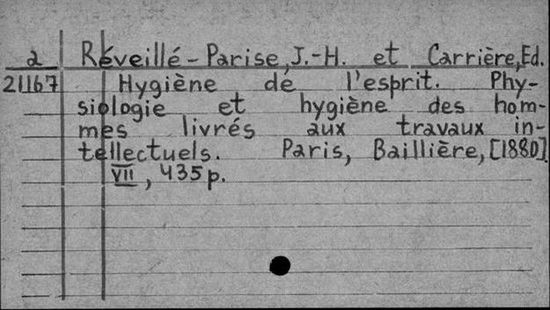 a Réveillé-Parise, J.-H. et Carrière, Ed.
21167 Hygiène de l'esprit. Phy-
siologie et hygiène des hom-
mes livrés aux travaux in-
tellectuels. Paris, Baillière, [1880]
VII, 435 p.